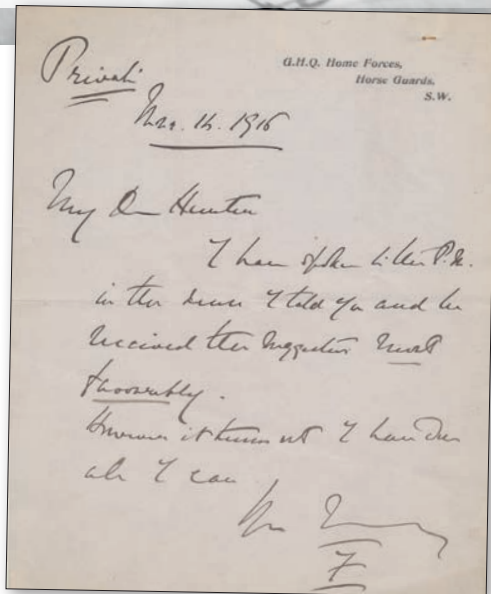 G.H.Q. Home Forces,
Horse Guards,
S.W.
Private
1916
My Dear Hunter
I have spoken to the P.M.
in the sense I told you and he
received the suggestion most
favourably.
However it turns out I have done
all I can
F